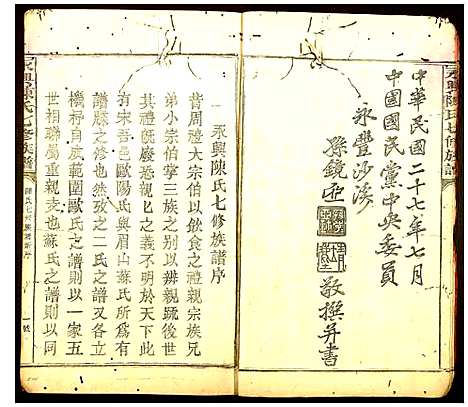 永興陳氏七修族譜
中華民國二十七年七月
中國國民黨中央委員
永豐沙溪
孫鏡亞
敬撰并書
永興陳氏七修族譜序
昔周禮大宗伯以飲食之禮親宗族兄
弟小宗伯掌三族之別以辨親疎後世
其禮旣廢恐親親之義不明於天下
有宋吾邑歐陽氏與眉山蘇氏所爲有
譜牒之修也然攷之二氏之譜又各不
相侔自其範圍歐氏之譜則以一家五
世相聯屬重親也蘇氏之譜則以同
永興陳氏七修族譜
陳氏七修族譜新序
一號